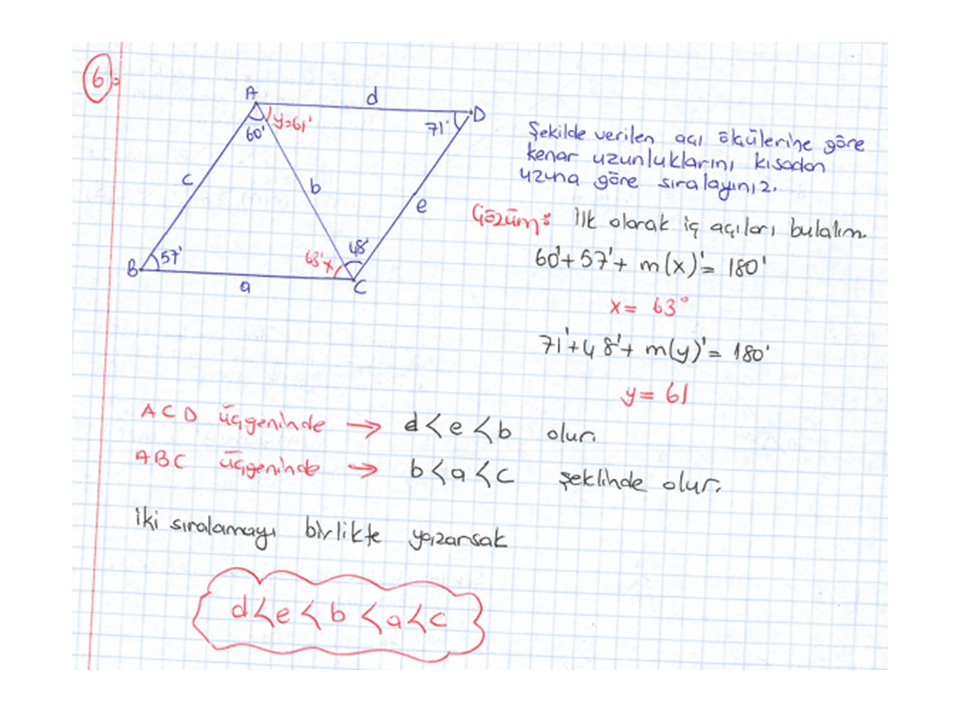 6:
A
d
D
y=61'
60'
71'
c
b
e
B
57'
63' x
48'
a
C
Şekilde verilen açı ölçülerine göre
kenar uzunluklarını kısadan
uzuna göre sıralayınız.
Çözüm: İlk olarak iç açıları bulalım.
60'+57'+ m(x)'= 180'
x= 63°
71'+48'+ m(y)'= 180'
y= 61
ACD üçgeninde → d<e<b olur.
ABC üçgeninde → b<a<c şeklinde olur.
İki sıralamayı birlikte yazarsak
d<e<b<a<c